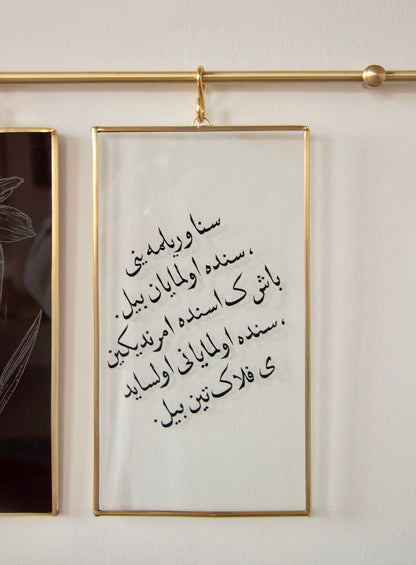 سنا وریلمه ینی
سنده اولمایان بیل.،
باش ک اسنده امرندیکین
سنده اولمایانی اولساید،
ی فلاک تین بیل.